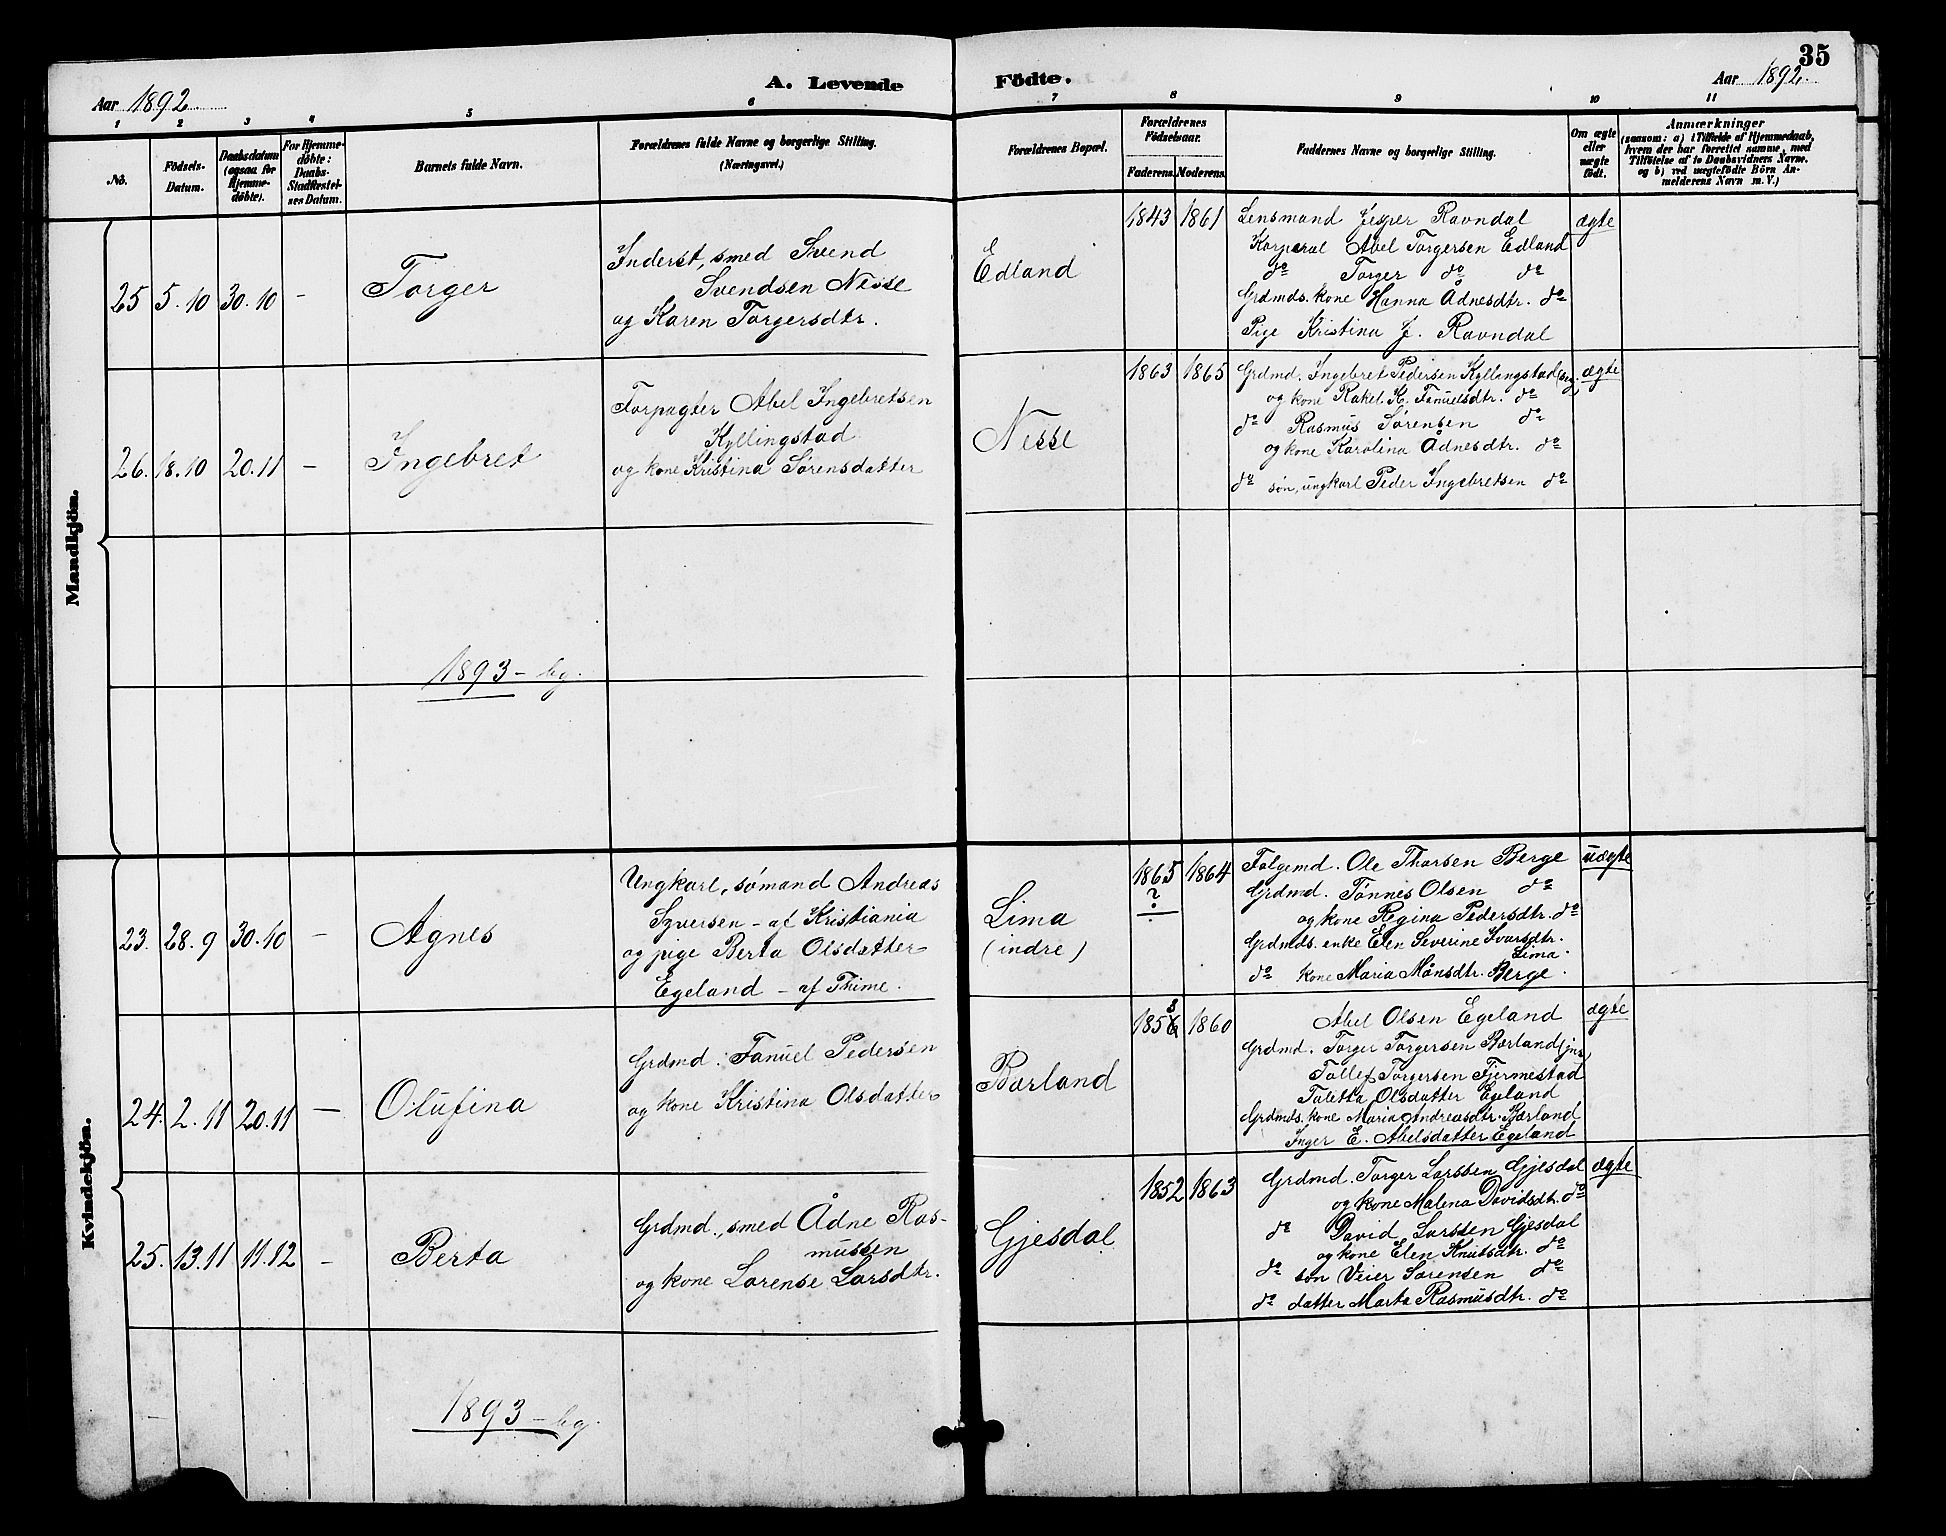 35
Aar 1892
A. Levende Födte.
Aar 1892
1 2 3 4 5 6 7 8 9 10 11
No.
Födsels-
Datum.
Daabsdatum
(ogsaa for
Hjemme-
døbte).
For Hjemme-
døbte:
Daabs-
Stadfæstel-
ses Datum.
Barnets fulde Navn.
Forældrenes fulde Navne og borgerlige Stilling.
(Næringsvei.)
Forældrenes Bopæl.
Forældrenes
Födselsaar.
Faderens. Moderens.
Faddernes Navne og borgerlige Stilling.
Om ægte
eller
uægte
födt.
Anmærkninger
(saasom: a) i Tilfælde af Hjemmedaab,
hvem der har forrettet samme, med
Tilföielse af to Daabsvidners Navne.
og b) ved uægtefödte Börn An-
melderens Navn m. V.)
Mandkjön.
25 5.10 30.10 -
Torger
Inderst, smed Svend
Svendsen Nesse
og Karen Torgersdtr.
Edland
1843 1861
Lensmand Jesper Ravndal
Korperal Abel Torgersen Edland
do Torger do do
Grdmds. kone Hanna Ådnesdtr. do
Pige Kristina J. Ravndal
ægte
26. 18.10 20.11 -
Ingebret
Forpagter Abel Ingebretsen
Kyllingstad
og kone Kristina Sørensdatter
Nesse
1863 1865
Grdmd. Ingebret Pedersen Kyllingstad
og kone Rakel K. Fanuelsdtr. do
do Rasmus Sørensen do
og kone Karolina Ådnesdtr. do
do søn, ungkarl Peder Ingebretsen do
ægte
1893 - bg.
Kvindekjön.
23. 28.9 30.10 -
Agnes
Ungkarl, sømand Andreas
Syversen - af Kristiania
og pige Berta Olsdatter
Egeland - af Thime.
Lima
(indre)
1865 1864
?
Folgemd. Ole Thorsen Berge
Grdmd. Tønnes Olsen do
og kone Regina Pedersdtr. do
Grdmds. enke Elen Severine Ivarsdtr.
Lima.
do kone Maria Månsdtr. Berge.
uægte
24. 2.11 20.11 -
Olufina
Grdmd. Fanuel Pedersen
og kone Kristina Olsdatter
Bærland
8
1856 1860
Abel Olsen Egeland
Grdmd. Torger Torgersen Bærland (jnr)
Tollef Torgersen Fjermestad
Taletta Olsdatter Egeland
Grdmds. kone Maria Andreasdtr. Bærland
Inger E. Abelsdatter Egeland
ægte
25. 13.11 11.12 -
Berta
Grdmd., smed Ådne Ras-
mussen
og kone Lorense Larsdtr.
Gjesdal
1852 1863
Grdmd. Torger Larssen Gjesdal
og kone Malena Davidsdtr. do
do David Larssen Gjesdal
og kone Elen Knutsdtr. do
do søn Veier Sørensen do
do datter Marta Rasmusdtr. do
ægte
1893 - bg.